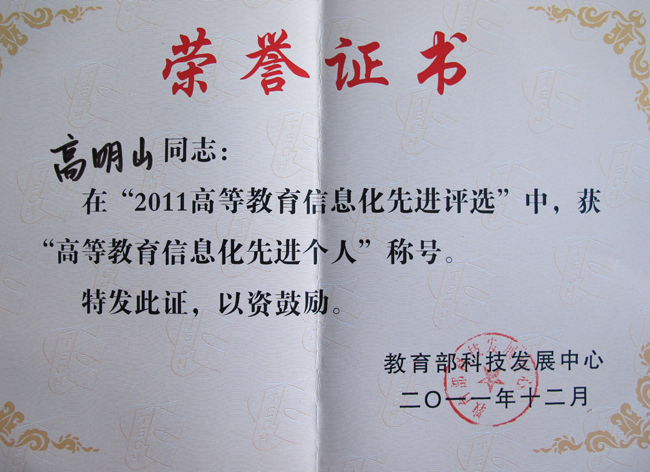 荣誉证书
高明山同志：
在“2011高等教育信息化先进评选”中，获
“高等教育信息化先进个人”称号。
特发此证，以资鼓励。
教育部科技发展中心
二〇一一年十二月
教育部科技发展中心